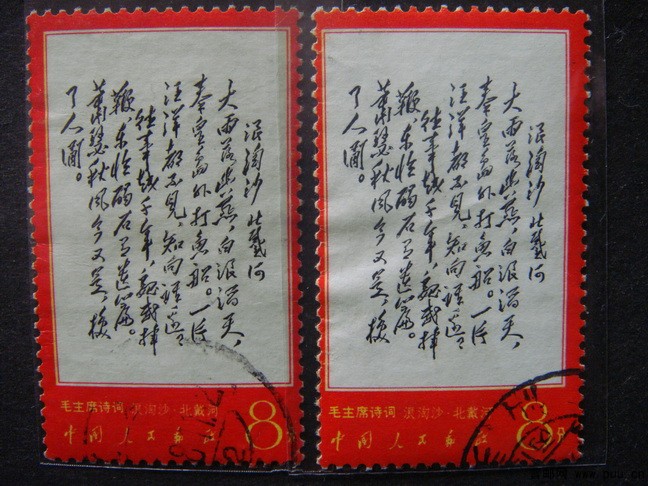 浪淘沙 北戴河
大雨落幽燕,白浪滔天,
秦皇島外打魚船。一片
汪洋都不見,知向谁边?
往事越千年,魏武挥
鞭,东临碣石有遗篇。
萧瑟秋风今又是,换
了人间。
毛主席诗词 浪淘沙·北戴河
中国人民邮政 8分
浪淘沙 北戴河
大雨落幽燕,白浪滔天,
秦皇島外打魚船。一片
汪洋都不見,知向谁边?
往事越千年,魏武挥
鞭,东临碣石有遗篇。
萧瑟秋风今又是,换
了人间。
毛主席诗词 浪淘沙·北戴河
中国人民邮政 8分